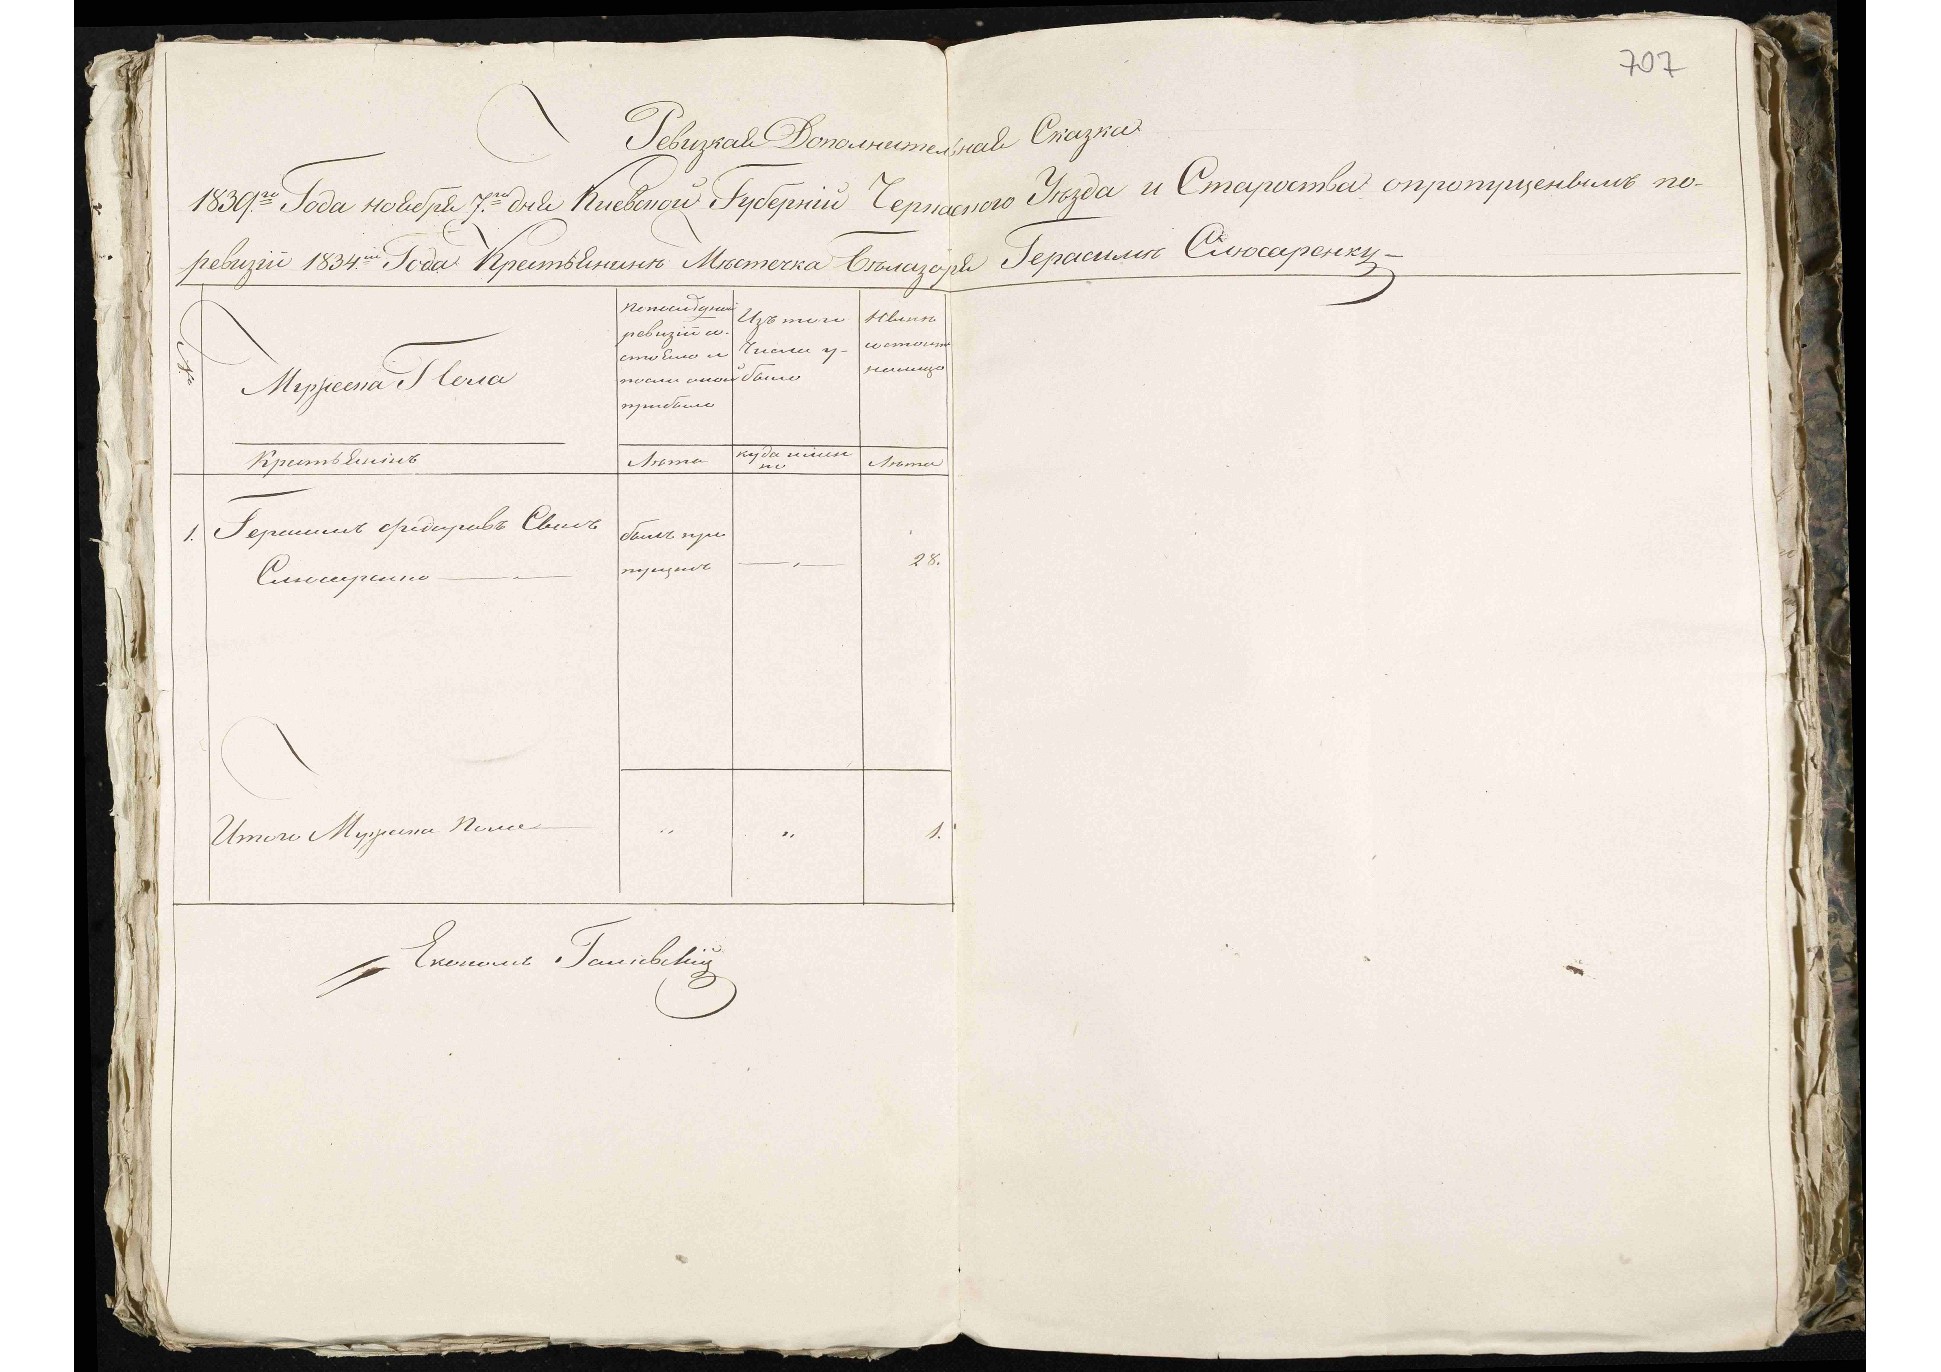 707
Ревизкая Дополнительная Сказка
1839.го Года ноября 7.го дня Киевской Губерніи Черкаского Уѣзда и Староства опропущенымъ по-
ревизіи 1834.й Года Крестьянинѣ Мѣстечка Бѣлазоря Герасимѣ Слюсаренку
№
Мужеска Пола
Попоследней ревизіи состояло и после оной прибыло
Изъ того Числа убыло
Нынѣ состоитъ налицо
Крестьянинъ
Лѣта
куда именно
Лѣта
1. Герасимъ Федоровъ Сынъ
Слюсаренко
былъ пропущенъ
28.
Итого Мужеска Пола
" " 1.
Економъ